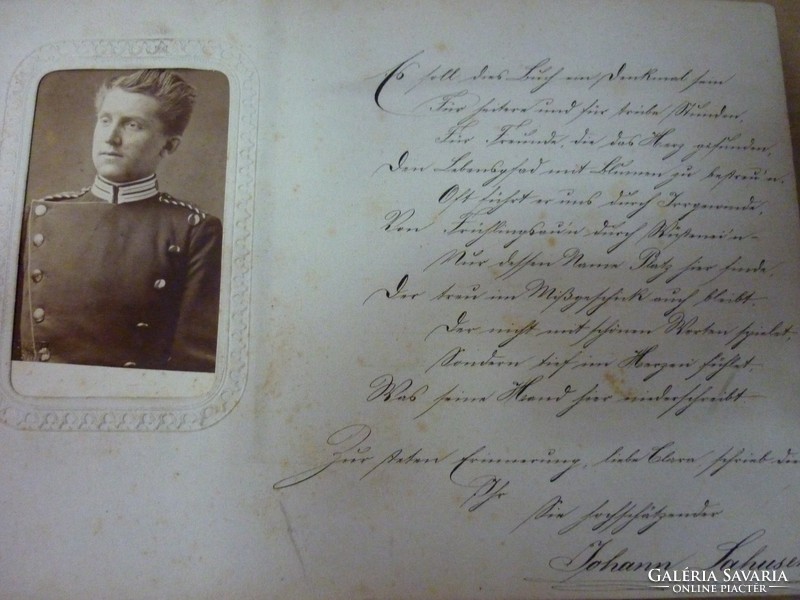 Es soll dies Buch ein Denkmal sein
Für heitere und für trübe Stunden,
Für Freunde, die das Herz gefunden,
Den Lebenspfad mit Blumen zu bestreu'n.
Oft führt er uns durch Irrgewinde,
Von Frühlingsau'n durch Wüstenei'n -
Nur dessen Name Platz hier finde,
Der treu im Mißgeschick auch bleibt.
Der nicht mit schönen Worten spielet,
Sondern tief im Herzen fühlet,
Was seine Hand hier niederschreibt.
Zur steten Erinnerung, liebe Clara, schrieb die
Ihr
Sie hochschätzender
Johann
GALÉRIA SAVARIA
ONLINE PIACTÉR